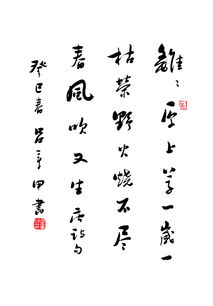 離〻原上草一歲一
枯榮野火燒不盡
春風吹又生詩句
癸巳春呂章申書